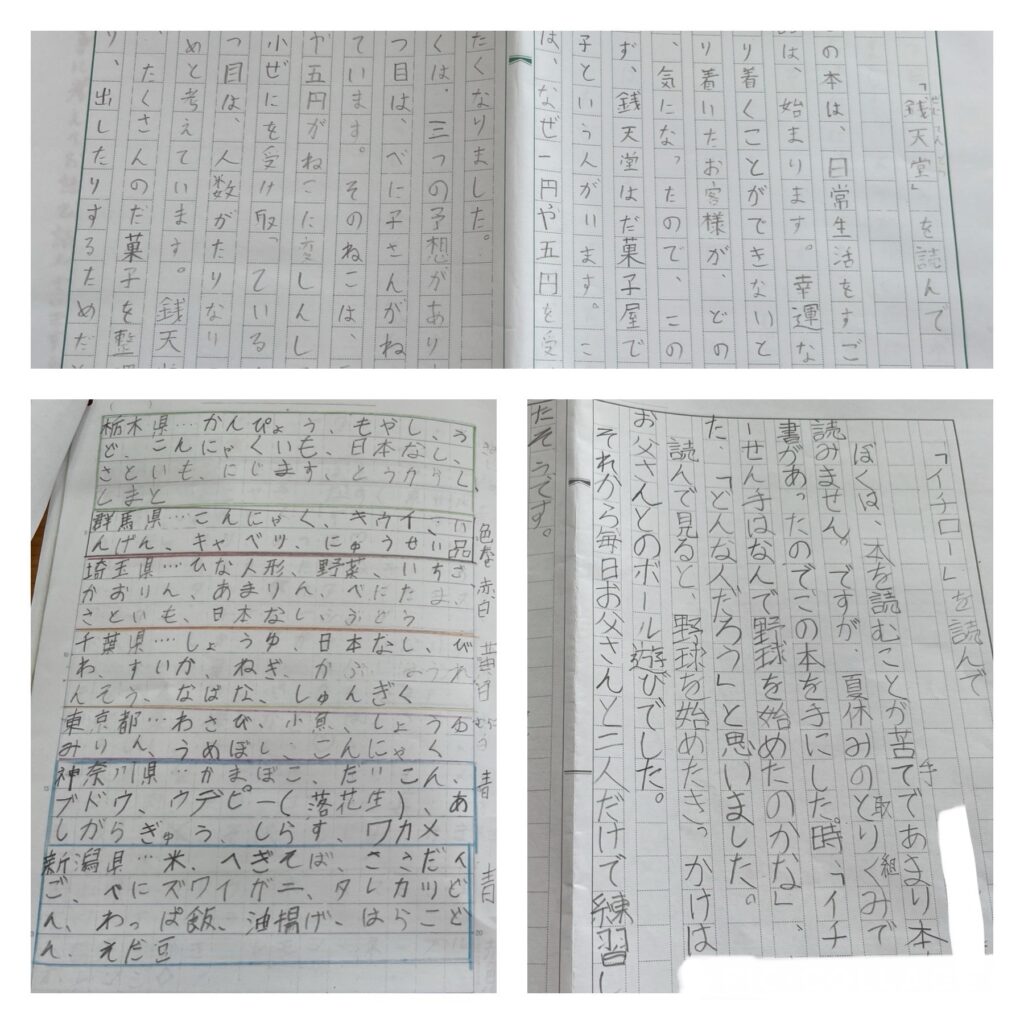 「銭天堂」を読んで
の本は、日常生活をすご
は、始まります。幸運な
り着くことができないと
り着いたお客様が、どの
、気になったので、この
ず、銭天堂はだ菓子屋で
子という人がいます。こ
は、なぜ一円や五円を受
たくなりました。
くは、三つの予想があり
つ目は、べに子さんがね
ています。そのねこは、
や五円がねこに変しんし
小ぜにを受け取っている
つ目は、人数がたりなり
めと考えています。銭天
、たくさんのだ菓子を整
り、出したりするためだ
栃木県…かんぴょう、もやし、う
ど、こんにゃくいも、日本なし、
さといも、にじます、とうがらし、
しまと
群馬県…こんにゃく、キウイ、い
んげん、キャベツ、にゅうせい品
埼玉県…ひな人形、野菜、いちご
かおりん、あまりん、べにたま、
さといも、日本なし、ぶどう
千葉県…しょうゆ、日本なし、び
わ、すいか、ねぎ、かぶ、ほうれ
んそう、なばな、しゅんぎく
東京都…わさび、小魚、しょうゆ
みりん、うめぼし、こんにゃく
神奈川県…かまぼこ、だいこん、
ブドウ、ウデピー(落花生)、あ
しがらぎゅう、しらす、ワカメ
新潟県…米、へぎそば、ささだん
ご、べにズワイガニ、タレカツど
ん、わっぱ飯、油揚げ、はらこど
ん、えだ豆
赤白
黄白
青
青
「イチロー」を読んで
ぼくは、本を読むことが苦手であまり本
読みません。ですが、夏休みのとり取くみ組で
書があったのでこの本を手にした。時、「イチ
ーせん手はなんで野球を始めたのかな」、
た、「どんな人だろう」と思いました。
読んで見ると、野球を始めたきっかけは
お父さんとのボール遊びでした。
それから毎日お父さんと二人だけで練習し
たそうです。